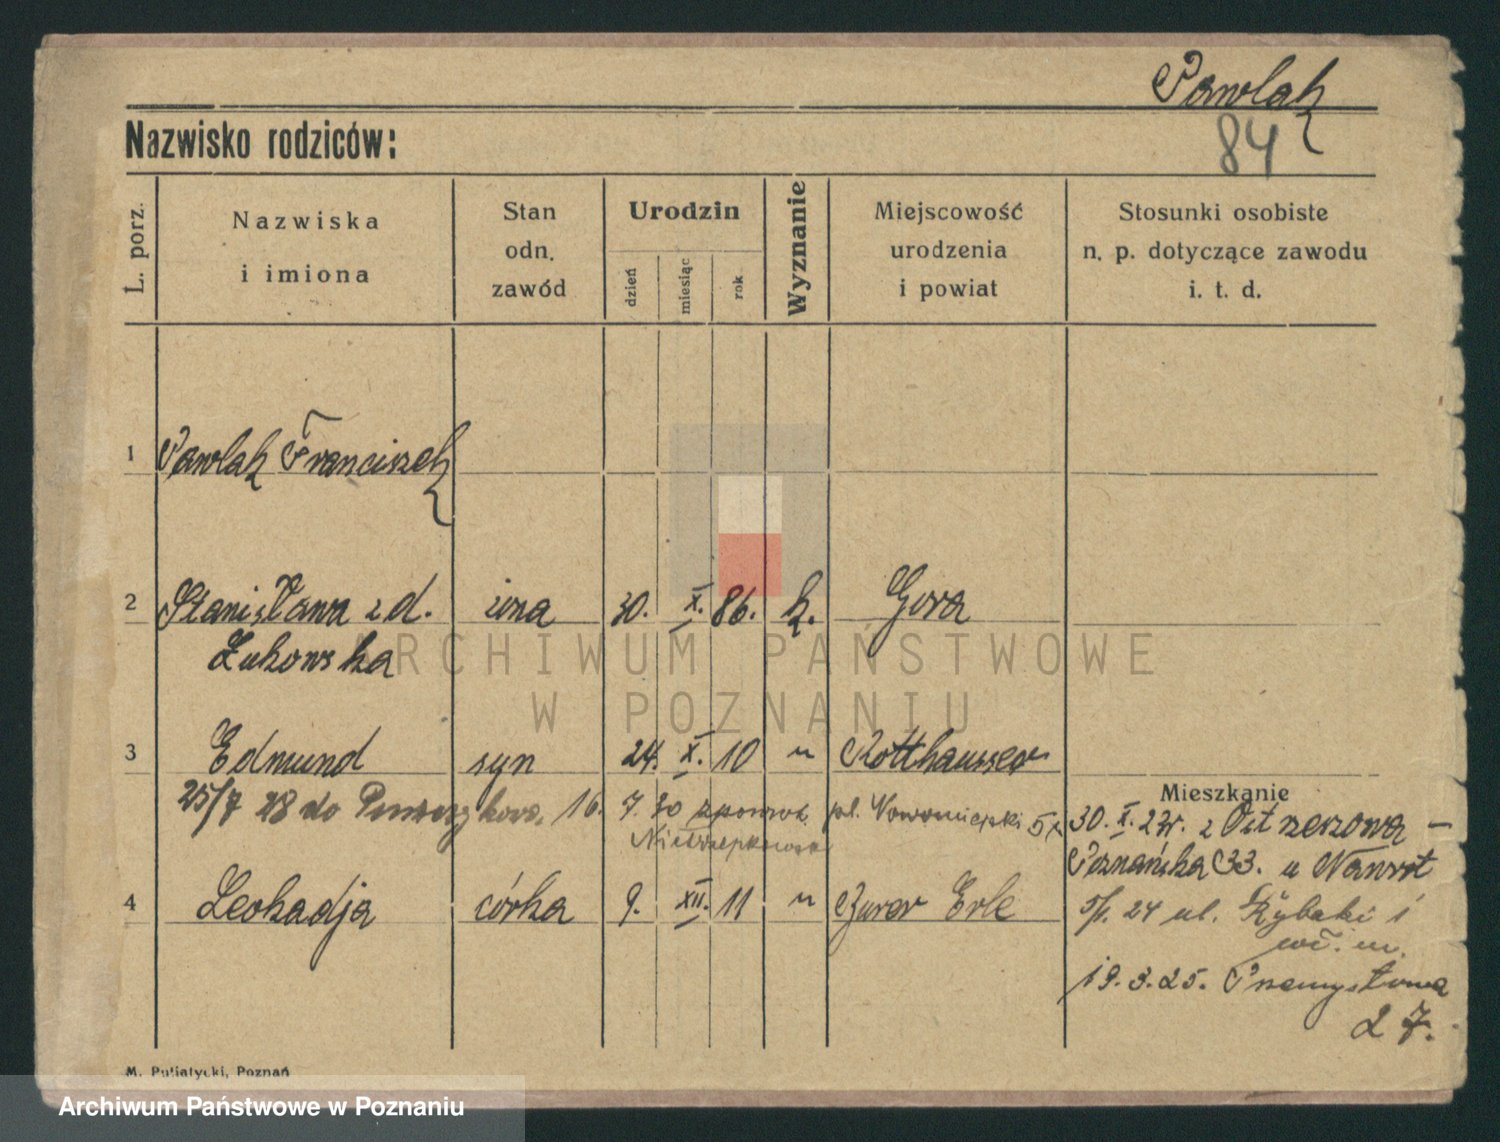 Pawlak
84
Nazwisko rodziców:
L. porz.
Nazwiska
i imiona
Stan
odn.
zawód
Urodzin
dzień
miesiąc
rok
Wyznanie
Miejscowość
urodzenia
i powiat
Stosunki osobiste
n. p. dotyczące zawodu
i. t. d.
1 Pawlak Franciszek
2 Stanisława z d. żona 30. X. 86. k. Gora
Łukowska
ARCHIWUM PAŃSTWOWE
W POZNANIU
3 Edmund syn 24. X. 10 " Rotthausser
Mieszkanie
25/7 28 do 16. 7. 30 pl. Nowomiejski 5
30. X. 23r. z Ostrzeszowa —
Poznańska 33. u Nawrot
4 Leokadja córka 9. XII. 11 " Burer Erle
24 ul. Rybaki 1
19.3.25. Przemysłowa
27.
M. Putiatycki, Poznań
Archiwum Państwowe w Poznaniu